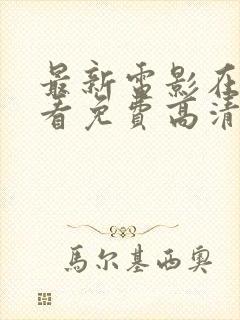 最新電影在
看免費高清
馬尔基西奥